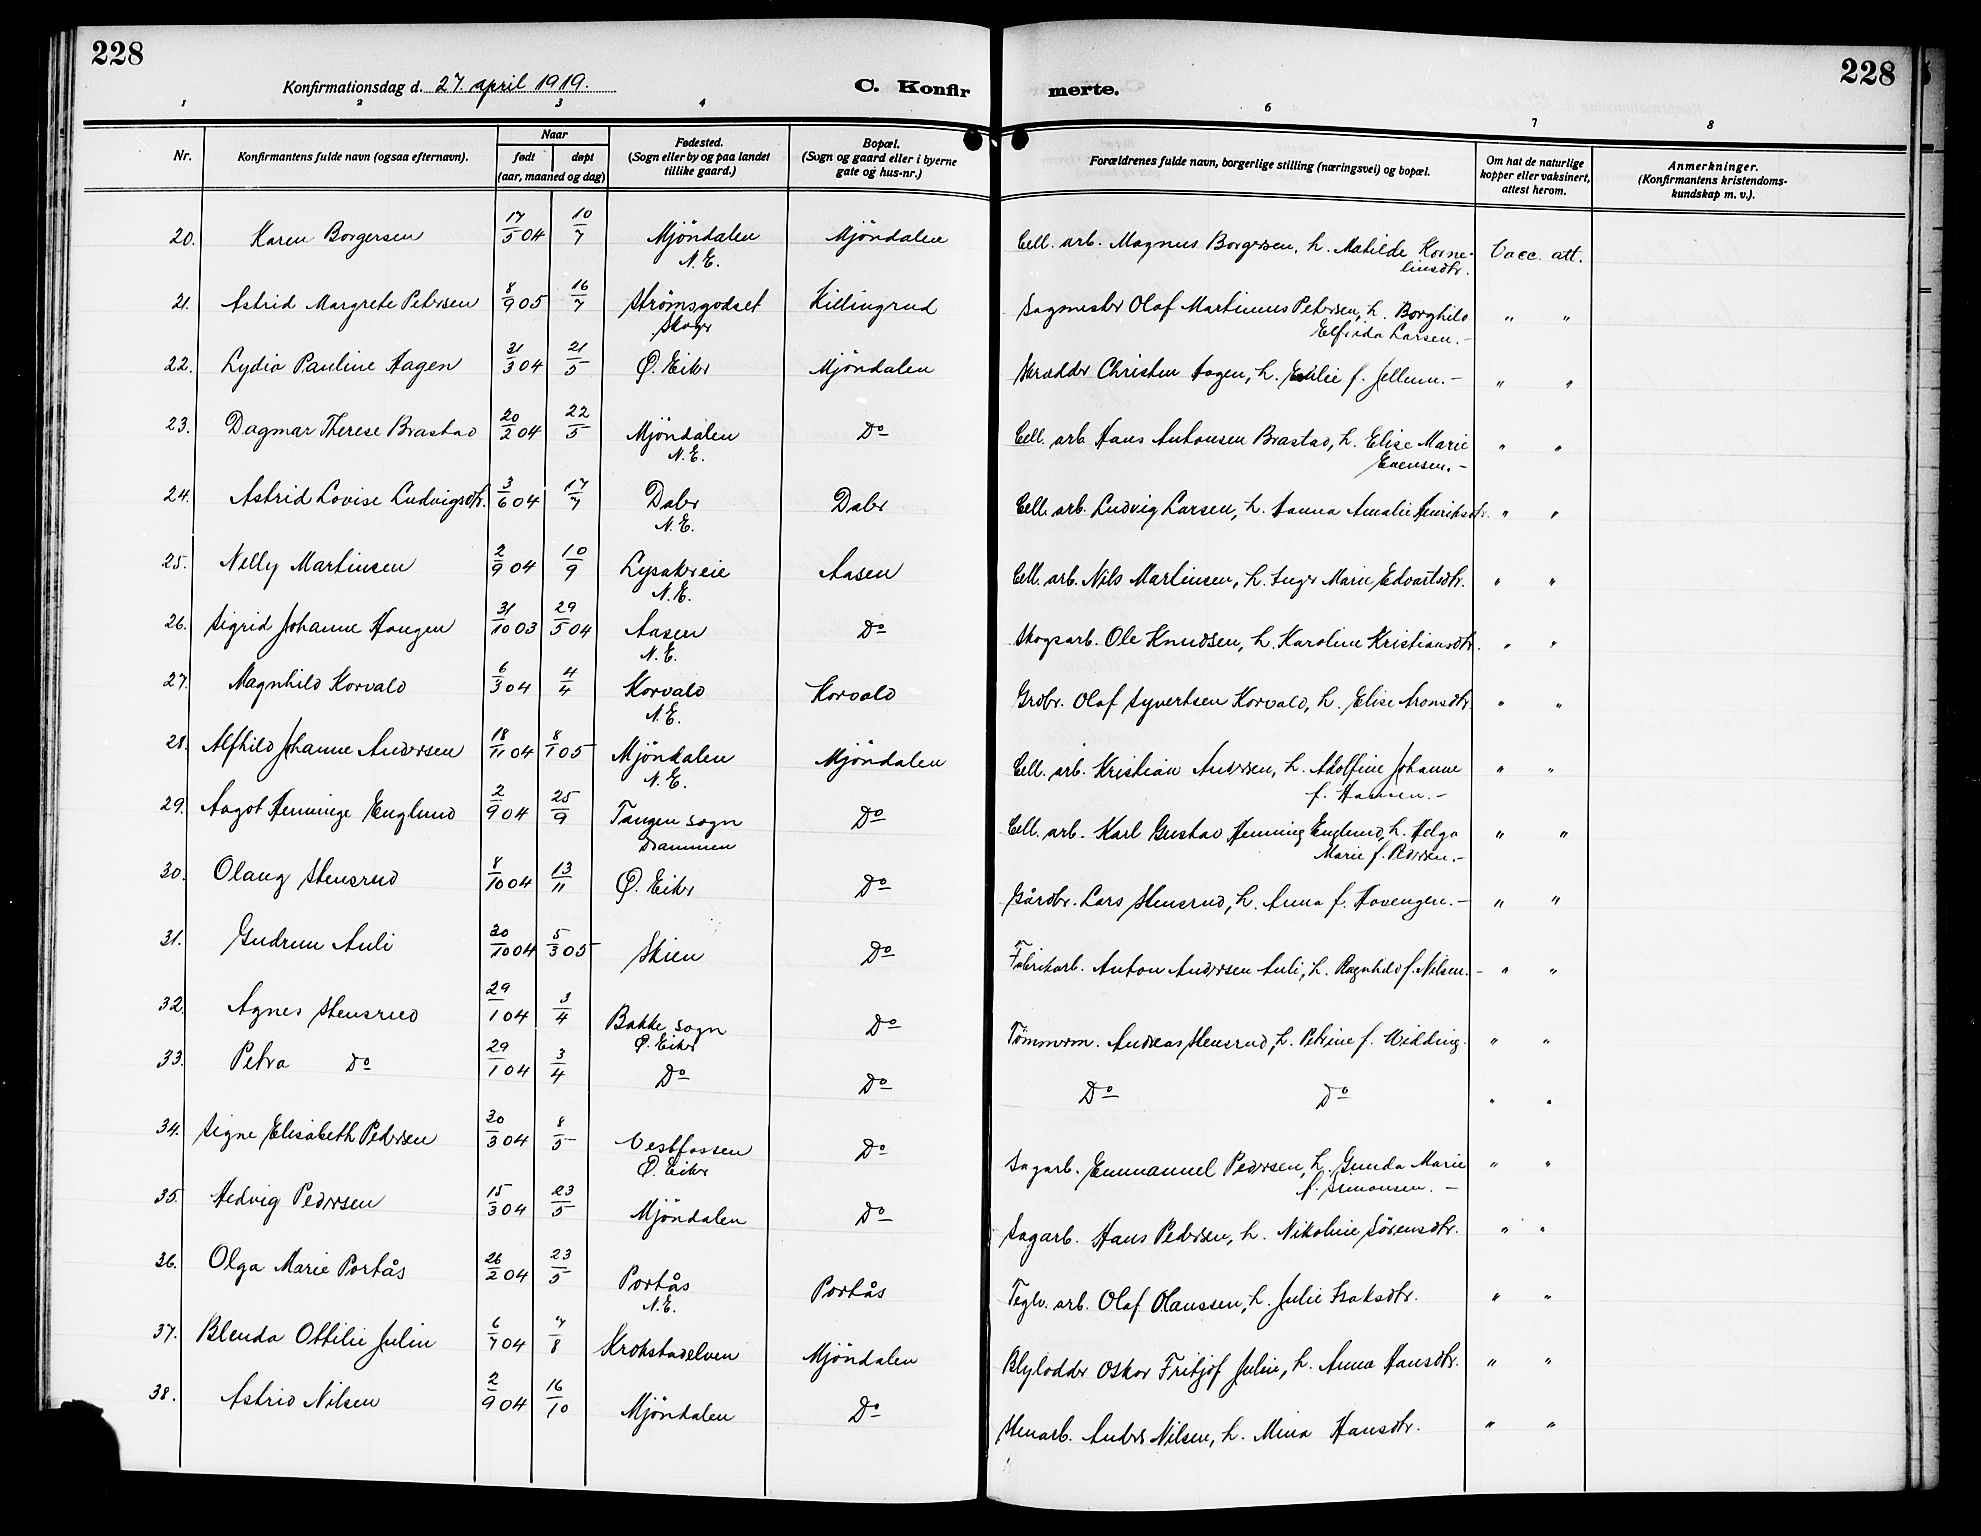 228
228
Konfirmationsdag d. 27. april 1919.
C. Konfir
merte.
1 2 3 4 6 7 8
Nr. Konfirmantens fulde navn (ogsaa efternavn). Naar født døpt (aar, maaned og dag) Fødested. (Sogn eller by og paa landet tillike gaard.) Bopæl. (Sogn og gaard eller i byerne gate og hus-nr.) Forældrenes fulde navn, borgerlige stilling (næringsvei) og bopæl. Om hat de naturlige kopper eller vaksinert, attest herom. Anmerkninger. (Konfirmantens kristendoms- kundskap m. v.).
20. Karen Borgersen 17/5 04 10/7 Mjöndalen N.E. Mjöndalen Cell. arb. Magnus Borgersen, h. Matilde Korne-
liusdtr. Vacc. att.
21. Astrid Margrete Petersen 8/9 05 16/7 Strömsgodset Skoger Killingrud Sagmester Olaf Martinius Petersen, h. Borghild
Elfrida Larsen. – " "
22. Lydia Pauline Hagen 31/3 04 21/5 Ø. Eiker Mjöndalen Skrædder Christen Hagen, h. Emilie f. Jellum. – " "
23. Dagmar Therese Brastad 20/2 04 22/5 Mjöndalen N.E. Do Cell. arb. Hans Antonsen Brastad, h. Elise Marie
Evensen. – " "
24. Astrid Lovise Ludvigsdtr. 3/6 04 17/7 Daler N.E. Daler Cell. arb. Ludvig Larsen, h. Hanna Amalie Henriksdtr. " "
25. Nelly Martinsen 2/9 04 10/9 Lysakereie N.E. Aasen Cell. arb. Nils Martinsen, h. Inger Marie Edvartsdtr. " "
26. Sigrid Johanne Haugen 31/10 03 29/5 04 Aasen N.E. Do Skogsarb. Ole Knudsen, h. Karoline Kristiansdtr. " "
27. Magnhild Korvald 6/3 04 4/4 Korvald N.E. Korvald Grdbr. Olaf Syvertsen Korvald, h. Elise Aronsdtr. " "
28. Alfhild Johanne Andersen 18/11 04 8/1 05 Mjöndalen N.E. Mjöndalen Cell. arb. Kristian Andersen, h. Adolfine Johanne
f. Hansen. – " "
29. Aagot Henninge Englund 2/9 04 25/9 Tangen sogn Drammen Do Cell. arb. Karl Gustav Henning Englund, h. Helga
Marie f. Pedersen. – " "
30. Olaug Stensrud 8/10 04 13/11 Ø. Eiker Do Gårdbr. Lars Stensrud, h. Anna f. Hovengen. – " "
31. Gudrun Auli 30/10 04 5/3 05 Skien Do Fabrikarb. Anton Andersen Auli, h. Ragnhild f. Nilsen. – " "
32. Agnes Stensrud 29/1 04 3/4 Bakke sogn Ø. Eiker Do Tømmerm. Andreas Stensrud, h. Petrine f. Hidding. " "
33. Petra Do 29/1 04 3/4 Do Do Do Do " "
34. Signe Elisabeth Pedersen 30/3 04 8/5 Vestfossen Ø. Eiker Do Sagarb. Emmanuel Pedersen, h. Gunda Marie
f. Simonsen. – " "
35. Hedvig Pedersen 15/3 04 23/5 Mjöndalen Do Sagarb. Hans Pedersen, h. Nikoline Sörensdtr. " "
36. Olga Marie Portås 26/2 04 23/5 Portås N.E. Portås Teglv. arb. Olaf Olaussen, h. Julie Isaksdtr. " "
37. Blenda Ottilie Julin 6/7 04 7/8 Krokstadelven Mjöndalen Blylodder Oskar Fritjof Julin, h. Anna Hansdtr. " "
38. Astrid Nilsen 2/9 04 16/10 Mjöndalen Do Stenarb. Anders Nilsen, h. Mina Hansdtr. " "